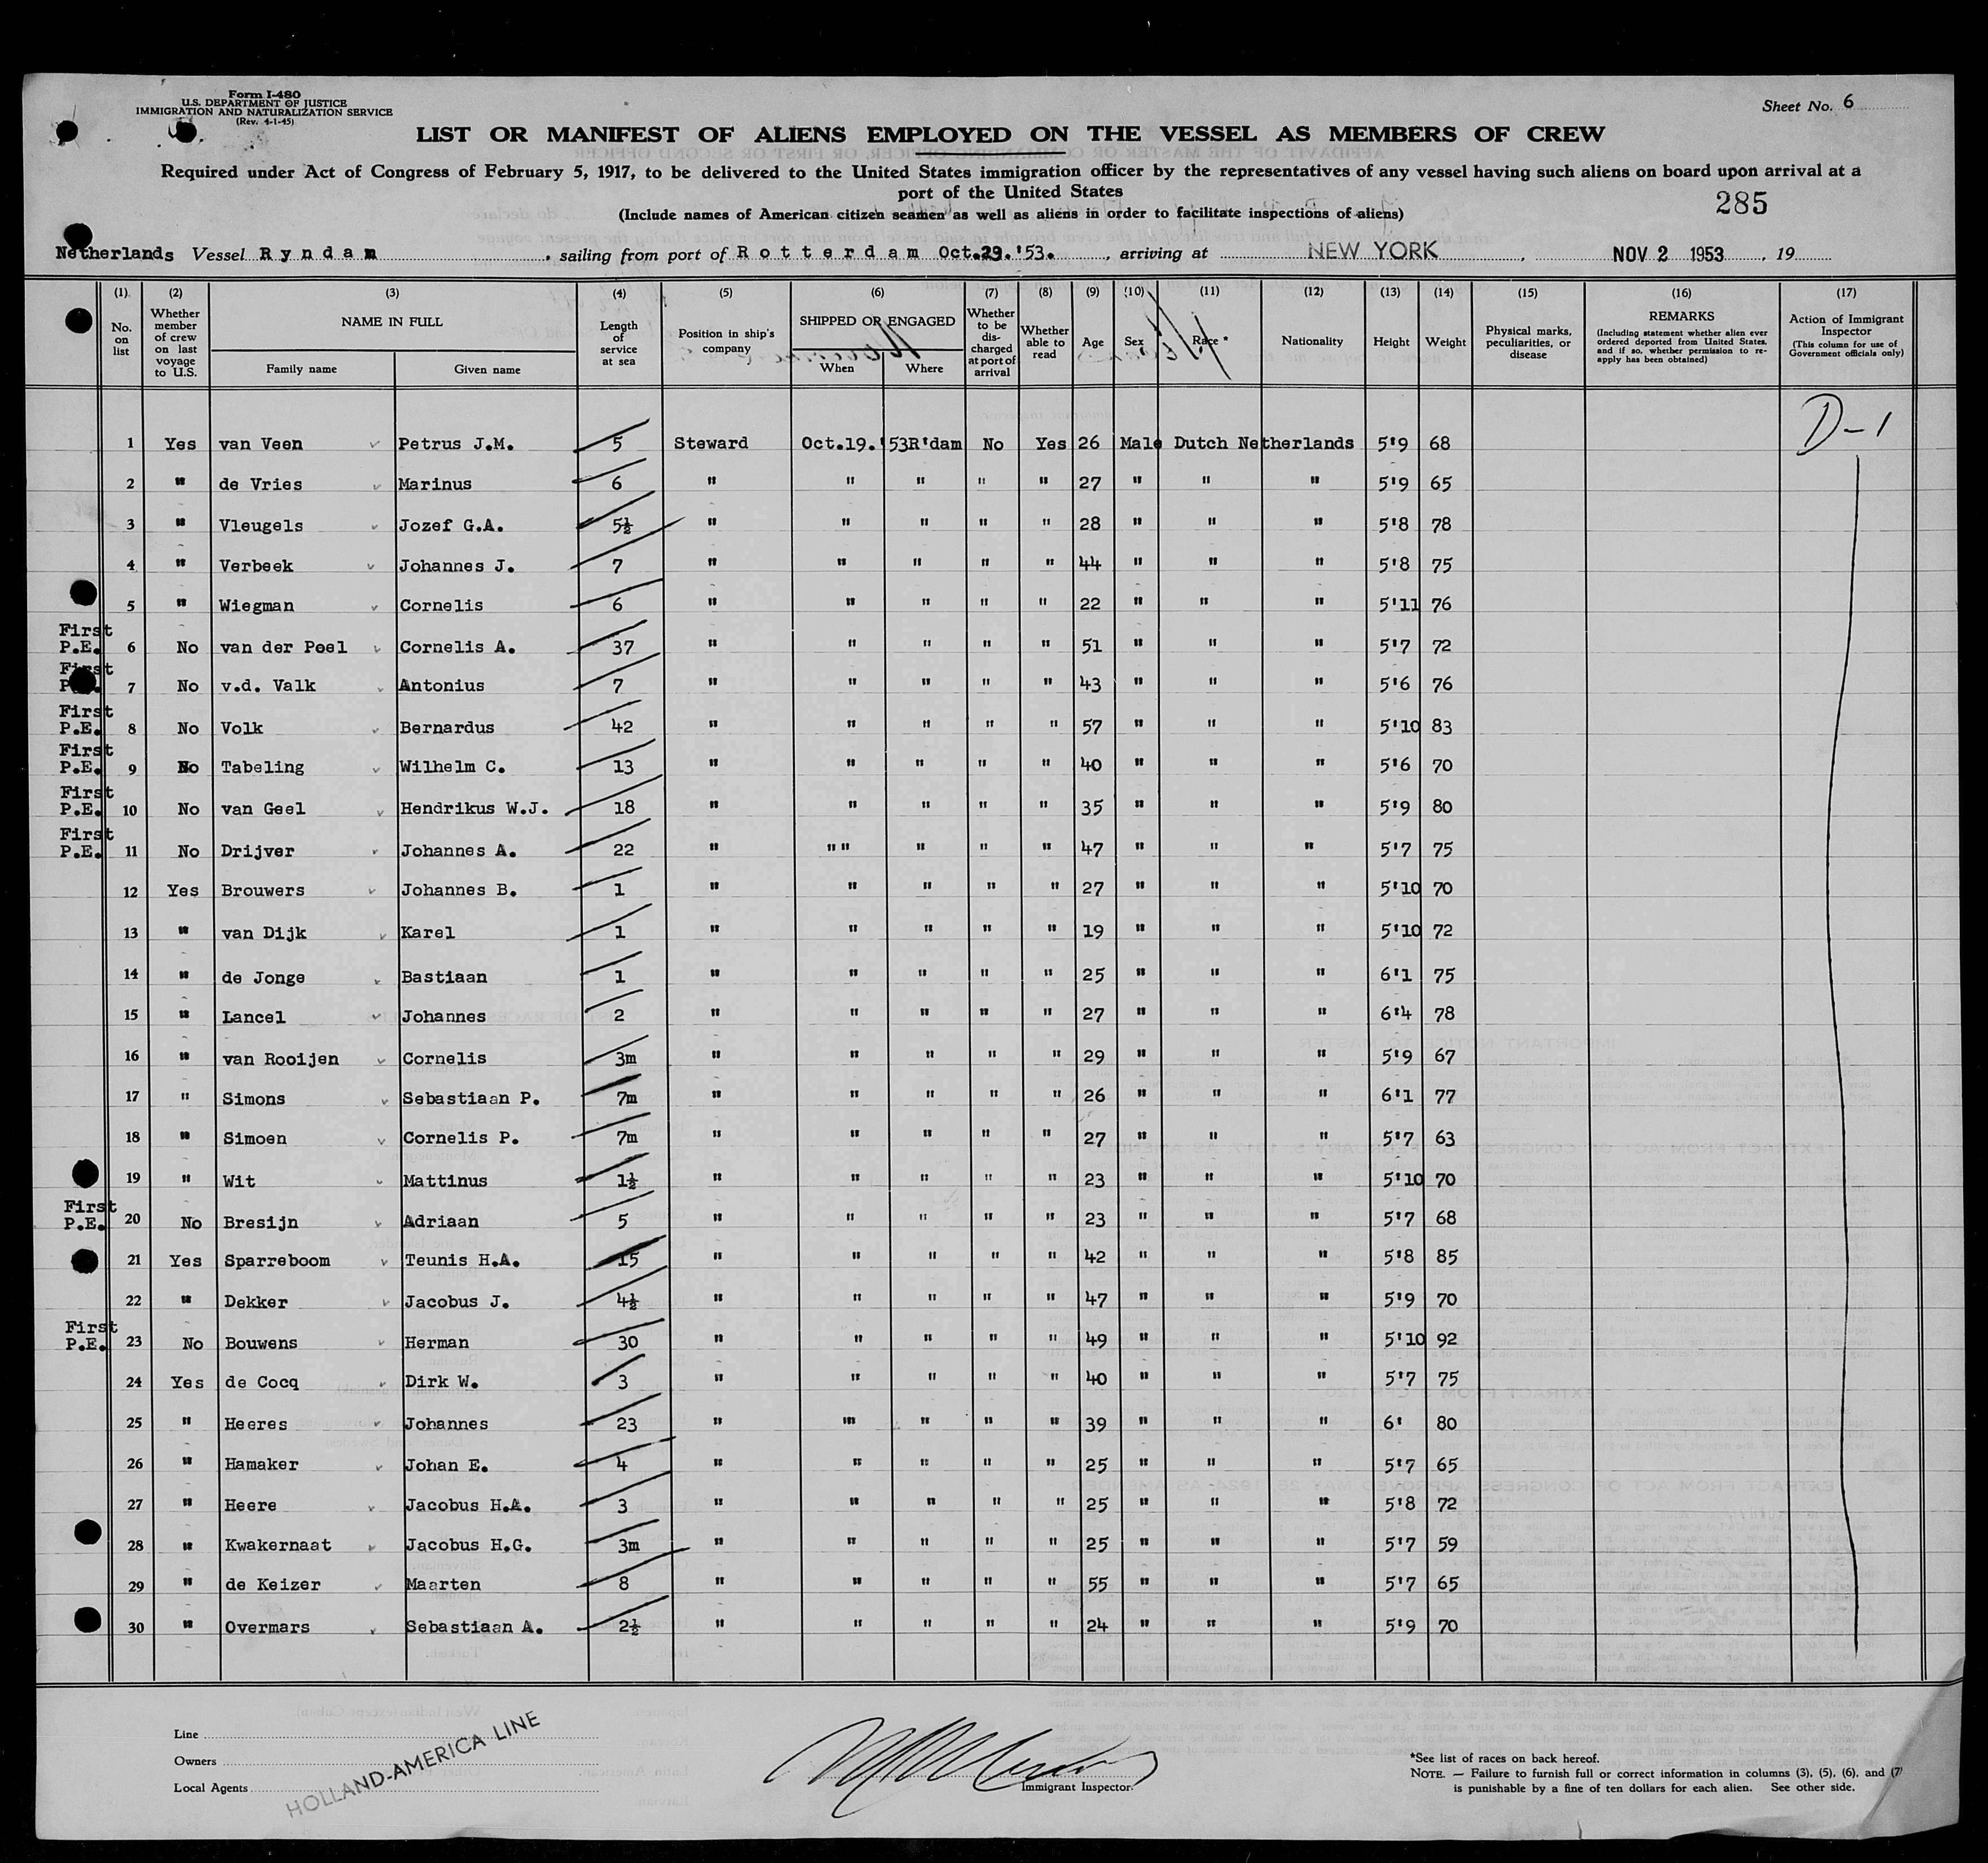 Form I-480
U.S. DEPARTMENT OF JUSTICE
IMMIGRATION AND NATURALIZATION SERVICE
(Rev. 4-1-45)
Sheet No. 6
LIST OR MANIFEST OF ALIENS EMPLOYED ON THE VESSEL AS MEMBERS OF CREW
Required under Act of Congress of February 5, 1917, to be delivered to the United States immigration officer by the representatives of any vessel having such aliens on board upon arrival at a
port of the United States
(Include names of American citizen seamen as well as aliens in order to facilitate inspections of aliens)
285
Netherlands Vessel Ryndam, sailing from port of Rotterdam Oct.29.'53., arriving at NEW YORK, NOV 2 1953, 19
(1) (2) (3) (4) (5) (6) (7) (8) (9) (10) (11) (12) (13) (14) (15) (16) (17)
No. on list
Whether member of crew on last voyage to U.S.
NAME IN FULL
Family name
Given name
Length of service at sea
Position in ship's company
SHIPPED OR ENGAGED
When
Where
Whether to be discharged at port of arrival
Whether able to read
Age
Sex
Race *
Nationality
Height
Weight
Physical marks, peculiarities, or disease
REMARKS
(Including statement whether alien ever ordered deported from United States, and if so, whether permission to re-apply has been obtained)
Action of Immigrant Inspector
(This column for use of Government officials only)
D-1
1 Yes van Veen Petrus J.M. 5 Steward Oct.19.'53 R'dam No Yes 26 Male Dutch Netherlands 5'9 68
2 " de Vries Marinus 6 " " " " " 27 " " " 5'9 65
3 " Vleugels Jozef G.A. 5½ " " " " " 28 " " " 5'8 78
4 " Verbeek Johannes J. 7 " " " " " 44 " " " 5'8 75
5 " Wiegman Cornelis 6 " " " " " 22 " " " 5'11 76
First P.E. 6 No van der Peel Cornelis A. 37 " " " " " 51 " " " 5'7 72
First P.E. 7 No v.d. Valk Antonius 7 " " " " " 43 " " " 5'6 76
First P.E. 8 No Volk Bernardus 42 " " " " " 57 " " " 5'10 83
First P.E. 9 No Tabeling Wilhelm C. 13 " " " " " 40 " " " 5'6 70
First P.E. 10 No van Geel Hendrikus W.J. 18 " " " " " 35 " " " 5'9 80
First P.E. 11 No Drijver Johannes A. 22 " "" " " " 47 " " " 5'7 75
12 Yes Brouwers Johannes B. 1 " " " " " 27 " " " 5'10 70
13 " van Dijk Karel 1 " " " " " 19 " " " 5'10 72
14 " de Jonge Bastiaan 1 " " " " " 25 " " " 6'1 75
15 " Lancel Johannes 2 " " " " " 27 " " " 6'4 78
16 " van Rooijen Cornelis 3m " " " " " 29 " " " 5'9 67
17 " Simons Sebastiaan P. 7m " " " " " 26 " " " 6'1 77
18 " Simoen Cornelis P. 7m " " " " " 27 " " " 5'7 63
19 " Wit Mattinus 1½ " " " " " 23 " " " 5'10 70
First P.E. 20 No Bresijn Adriaan 5 " " " " " 23 " " " 5'7 68
21 Yes Sparreboom Teunis H.A. 15 " " " " " 42 " " " 5'8 85
22 " Dekker Jacobus J. 4½ " " " " " 47 " " " 5'9 70
First P.E. 23 No Bouwens Herman 30 " " " " " 49 " " " 5'10 92
24 Yes de Cocq Dirk W. 3 " " " " " 40 " " " 5'7 75
25 " Heeres Johannes 23 " " " " " 39 " " " 6' 80
26 " Hamaker Johan E. 4 " " " " " 25 " " " 5'7 65
27 " Heere Jacobus H.A. 3 " " " " " 25 " " " 5'8 72
28 " Kwakernaat Jacobus H.G. 3m " " " " " 25 " " " 5'7 59
29 " de Keizer Maarten 8 " " " " " 55 " " " 5'7 65
30 " Overmars Sebastiaan A. 2½ " " " " " 24 " " " 5'9 70
Line
Owners
Local Agents
HOLLAND-AMERICA LINE
Immigrant Inspector.
*See list of races on back hereof.
NOTE. — Failure to furnish full or correct information in columns (3), (5), (6), and (7)
is punishable by a fine of ten dollars for each alien. See other side.